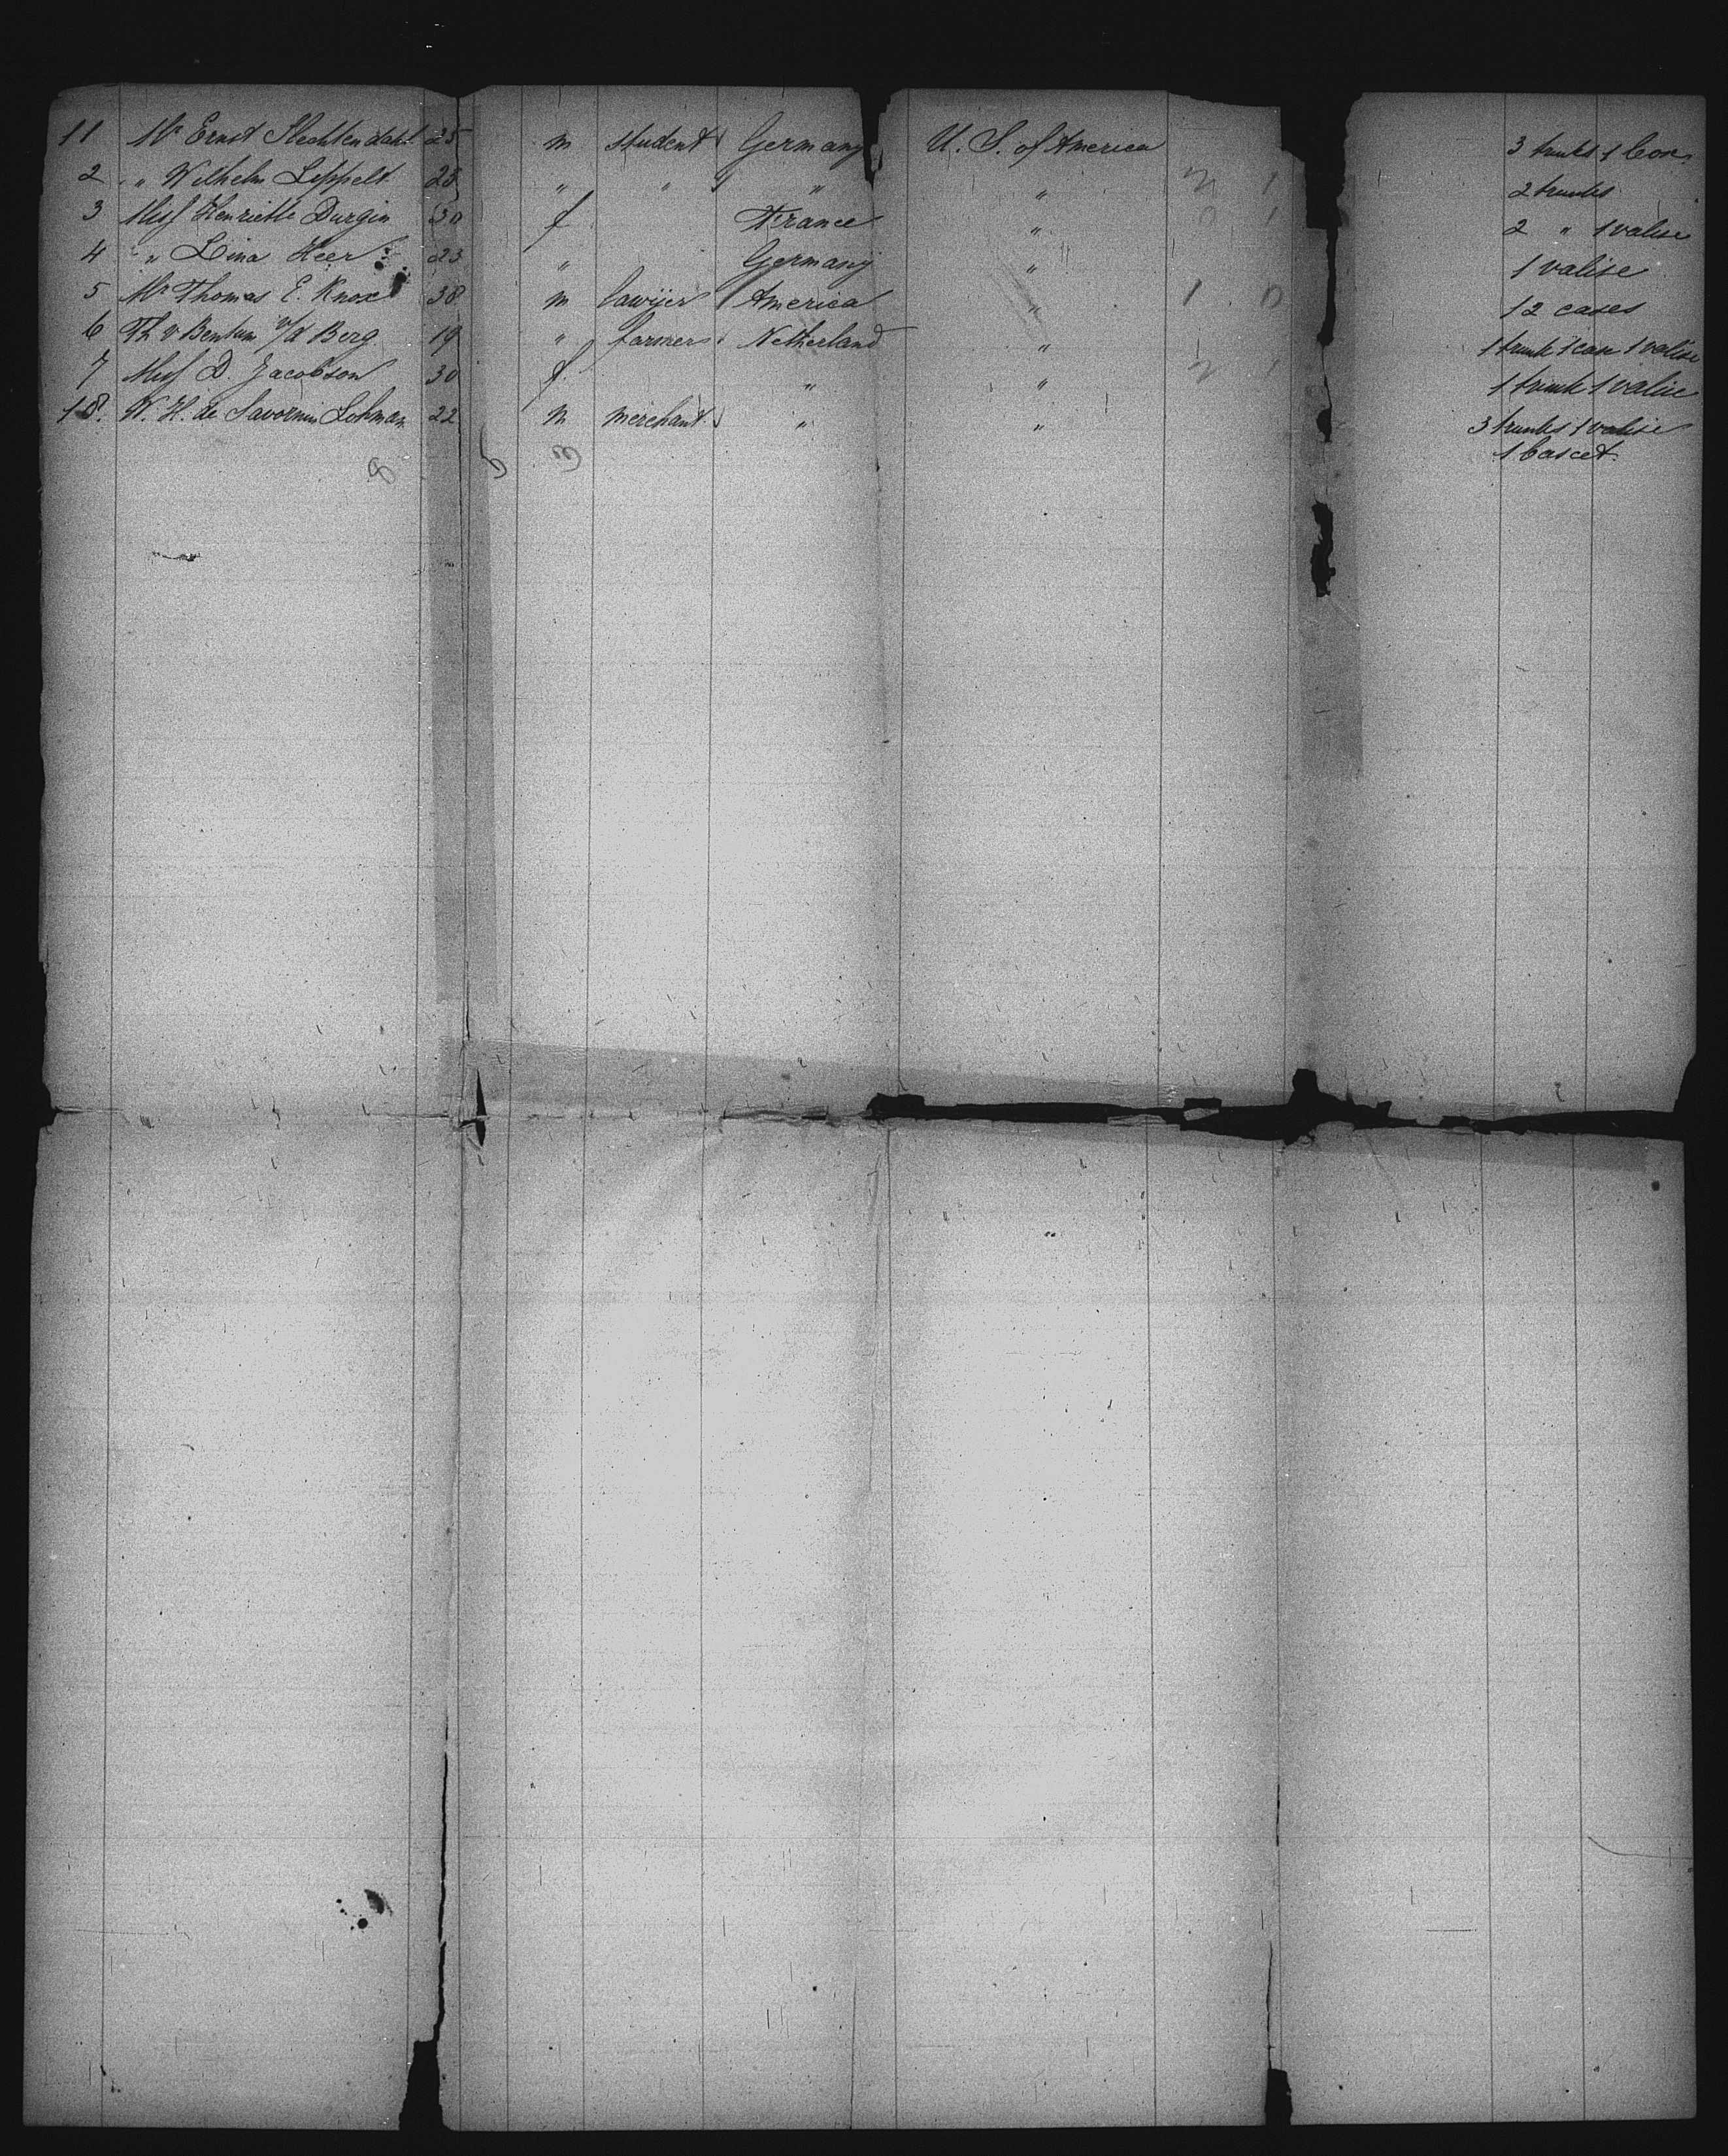 11 Mr Ernst Slechtendahl 25 m student Germany U. S. of America 3 trunks 1 box
2 " Wilhelm Leppelt 25 " " " " 2 trunks
3 Miss Henriette Durgin 30 f France " 2 " 1 valise
4 " Lina Heer 23 " Germany " 1 valise
5 Mr Thomas E. Knox 38 m lawijer America " 12 cases
6 Th v Bentum v/d Berg 19 " farmer Netherland " 1 trunk 1 case 1 valise
7 Miss D. Jacobson 30 f. " " 1 trunk 1 valise
18. W. H. de Savornin Lohman 22 m merchant " " 3 trunks 1 valise
1 bascet.